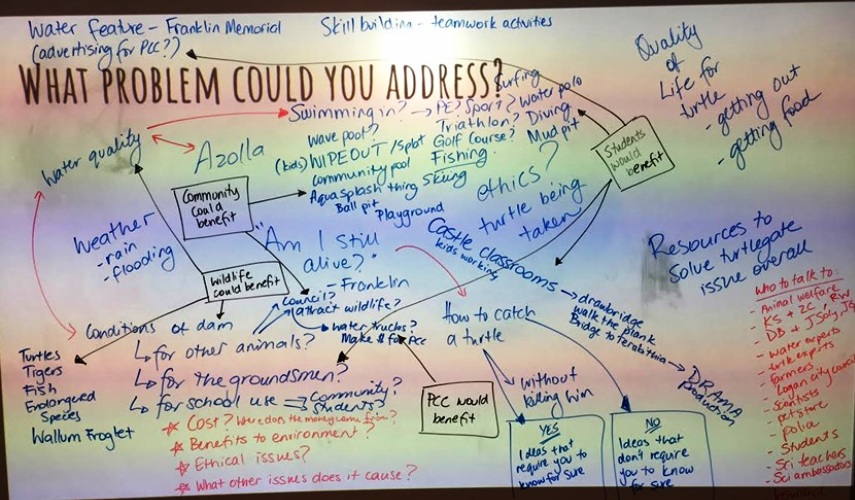 Water feature - Franklin Memorial
(advertising for PCC?)
Skill building - teamwork activities
WHAT PROBLEM COULD YOU ADDRESS?
Quality
of
Life for
turtle
- getting out
- getting food
Surfing
Swimming in? → PE? Sport? Water polo
Triathlon? Diving
Golf Course? Mud pit
Fishing
Wave pool?
(kids) WIPEOUT /
community pool
Aqua splash thing Skiing
Ball pit
Playground
Students
would
benefit
Water quality
Azolla
Community
could
benefit
ethics?
turtle being
taken
Weather
- rain
- flooding
"Am I still
alive?"
- Franklin
Castle classrooms
kids working
→ drawbridge
walk the plank
Bridge to terabithia
→ DRAMA
production
Resources to
solve turtlegate
issue overall
wildlife
could benefit
council?
attract wildlife?
water trucks?
Make $ for PCC
How to catch
a turtle
without
killing him
Conditions of dam
for other animals?
for the groundsmen?
for school use
Community?
Students?
Turtles
Tigers
Fish
Endangered
Species
Wallum Froglet
Cost? Where does the money come from?
Benefits to environment?
Ethical issues?
What other issues does it cause?
PCC would
benefit
YES
Ideas that
require you to
know for sure
NO
Ideas that
don't require
you to know
for sure
Who to talk to:
- Animal welfare
- KS + 2C + RW
- water experts
- turtle experts
- farmers
- Logan city council
- scientists
- pet store
- Students
- Sci teachers
- Sci ambassadors